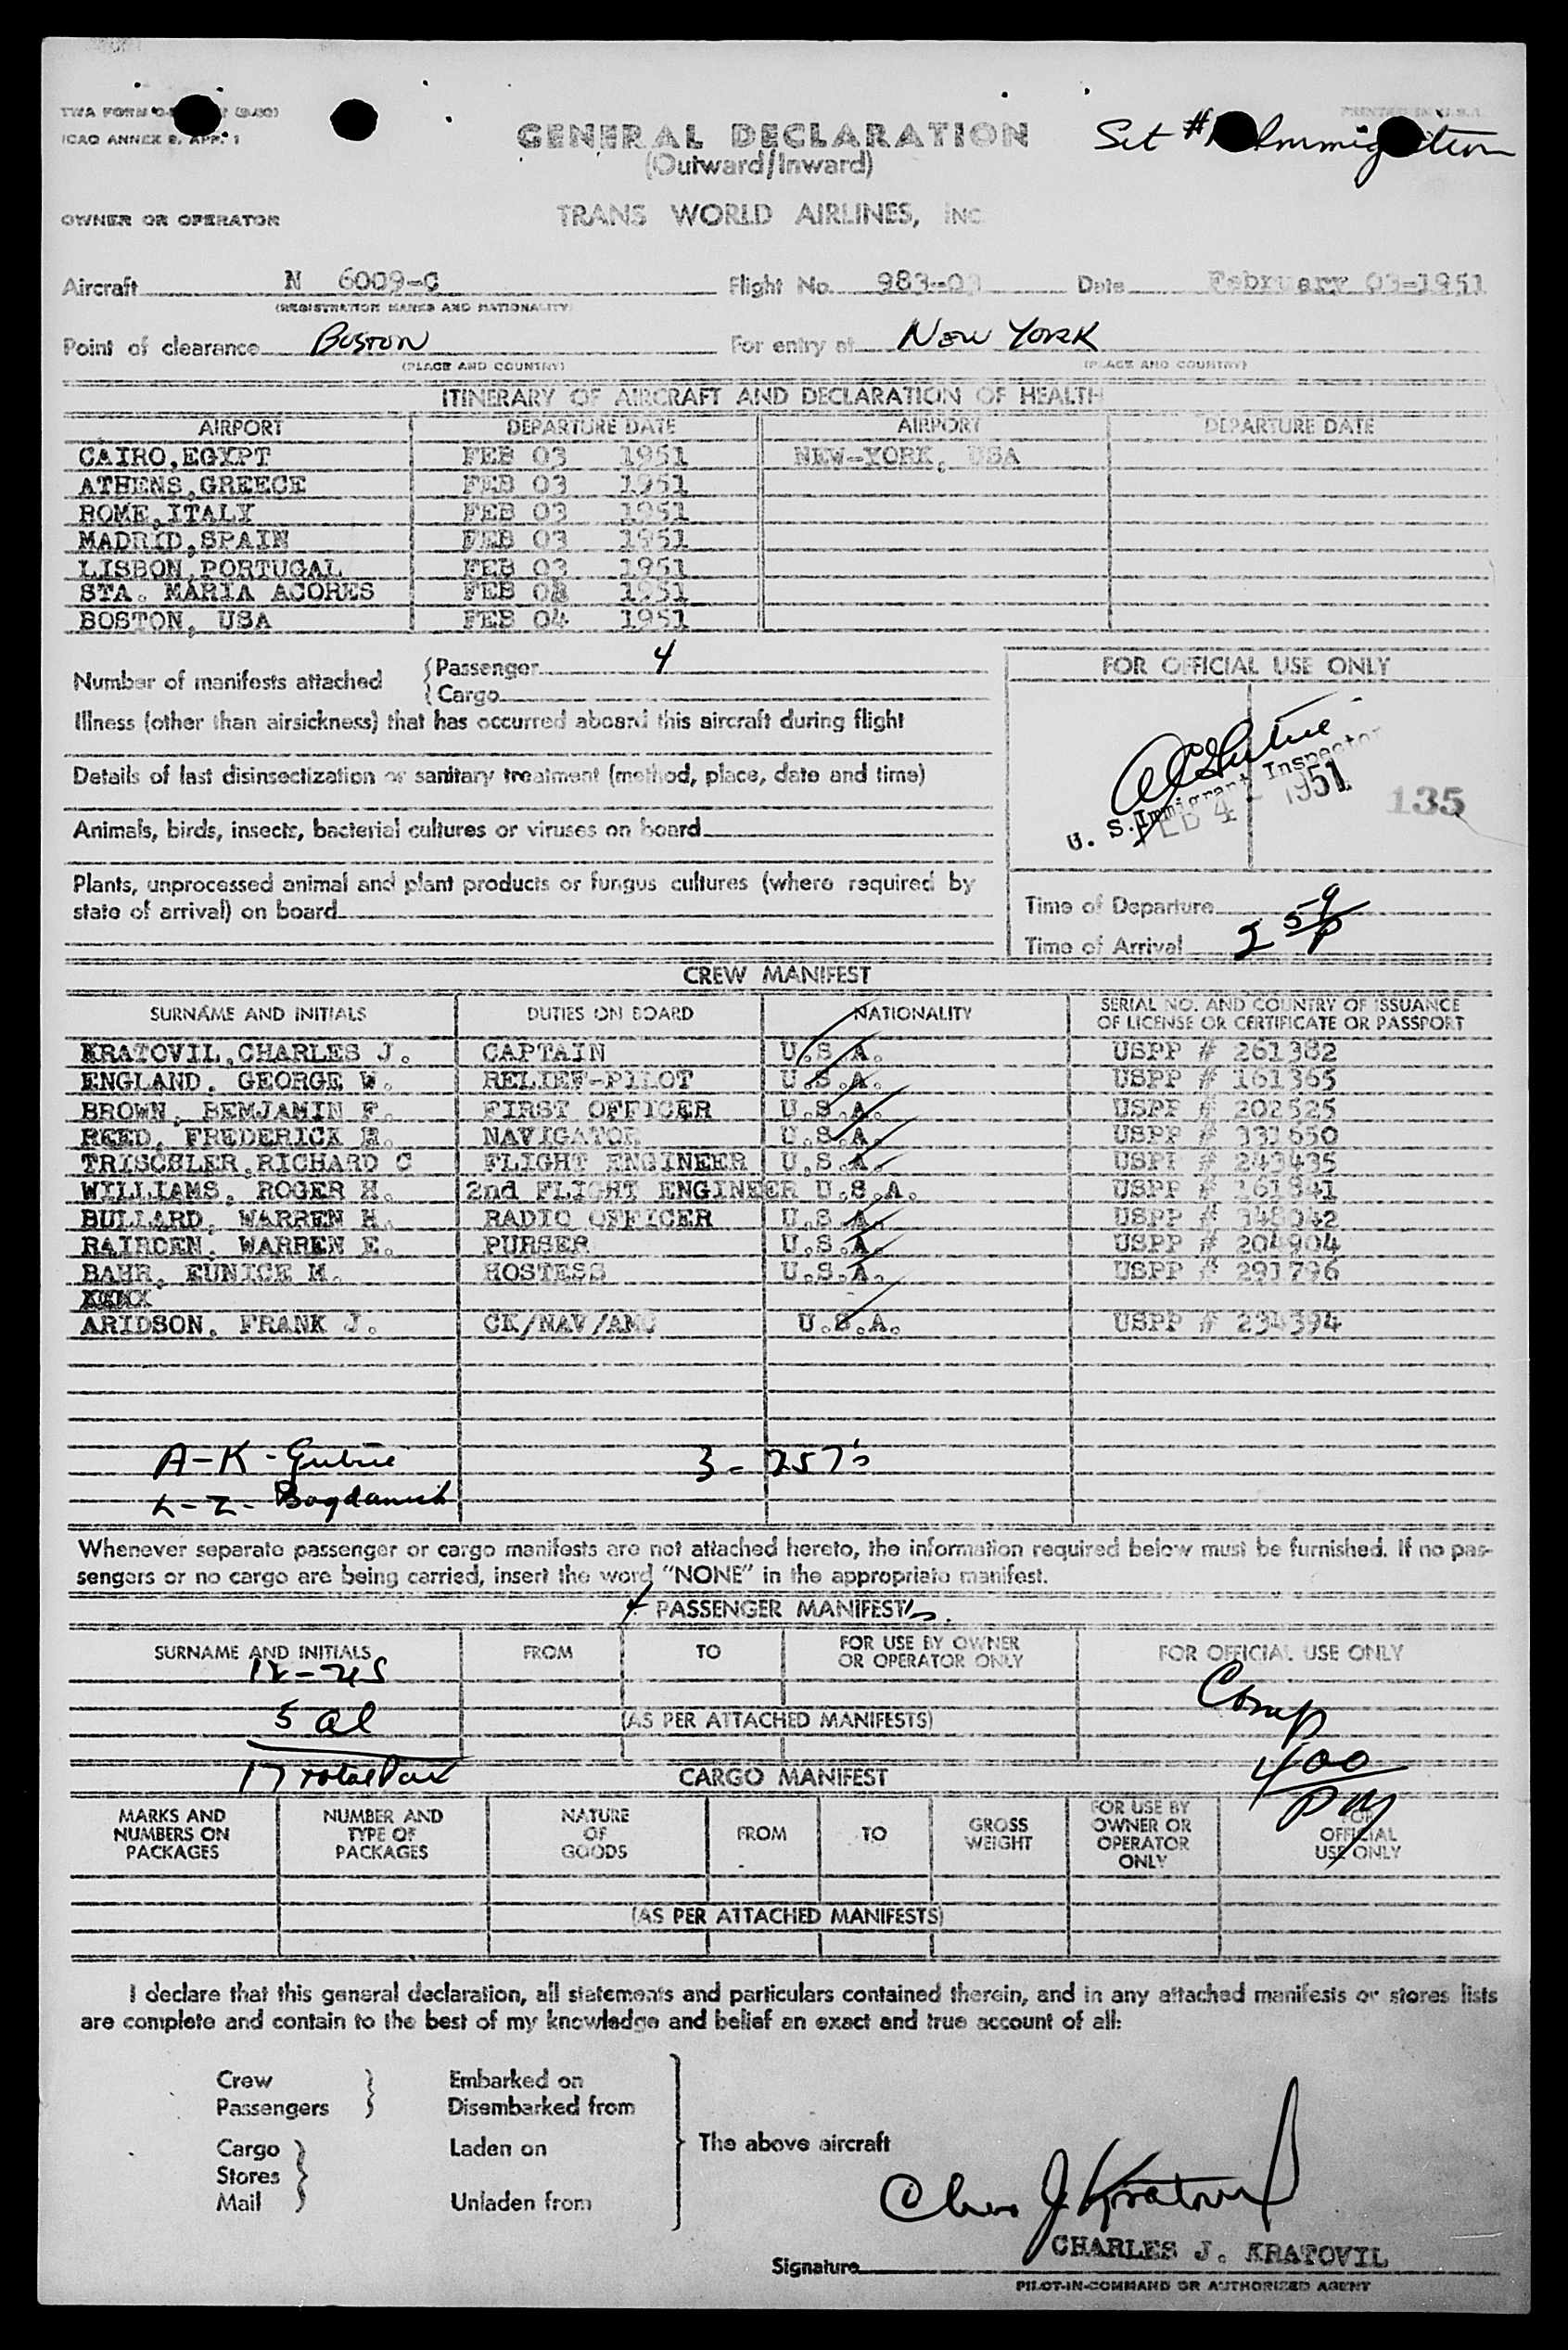 TWA FORM (8-50)
ICAO ANNEX 9, APP. 1
PRINTED IN U.S.A.
GENERAL DECLARATION
(Outward/Inward)
Set #
OWNER OR OPERATOR
TRANS WORLD AIRLINES, INC
Aircraft N 6009-C Flight No. 983-03 Date February 03-1951
(REGISTRATION MARKS AND NATIONALITY)
Point of clearance BOSTON For entry at NEW YORK
(PLACE AND COUNTRY) (PLACE AND COUNTRY)
ITINERARY OF AIRCRAFT AND DECLARATION OF HEALTH
AIRPORT DEPARTURE DATE AIRPORT DEPARTURE DATE
CAIRO,EGYPT FEB 03 1951 NEW-YORK, USA
ATHENS,GREECE FEB 03 1951
ROME,ITALY FEB 03 1951
MADRID,SPAIN FEB 03 1951
LISBON,PORTUGAL FEB 03 1951
STA. MARIA ACORES FEB 1951
BOSTON, USA FEB 04 1951
Number of manifests attached
Passenger 4
Cargo
FOR OFFICIAL USE ONLY
Illness (other than airsickness) that has occurred aboard this aircraft during flight
Details of last disinsectization or sanitary treatment (method, place, date and time)
U. S. Immigrant Inspector
FEB 4 - 1951
135
Animals, birds, insects, bacterial cultures or viruses on board
Plants, unprocessed animal and plant products or fungus cultures (where required by
state of arrival) on board
Time of Departure
Time of Arrival 2 59 P
CREW MANIFEST
SURNAME AND INITIALS DUTIES ON BOARD NATIONALITY SERIAL NO. AND COUNTRY OF ISSUANCE
OF LICENSE OR CERTIFICATE OR PASSPORT
KRATOVIL,CHARLES J. CAPTAIN U.S.A. USPP # 261382
ENGLAND, GEORGE W. RELIEF-PILOT U.S.A. USPP # 161365
BROWN, BEMJAMIN F. FIRST OFFICER U.S.A. USPP # 202525
REED, FREDERICK H. NAVIGATOR U.S.A. USPP # 331650
TRISCHLER,RICHARD C FLIGHT ENGINEER U.S.A. USPP # 243435
WILLIAMS, ROGER H. 2nd FLIGHT ENGINEER U.S.A. USPP # 161341
BULLARD, WARREN H. RADIO OFFICER U.S.A. USPP # 348042
RAIRDEN, WARREN E. PURSER U.S.A. USPP # 204904
BAHR, EUNICE M. HOSTESS U.S.A. USPP # 291796
ARIDSON, FRANK J. CK/NAV/ANC U.S.A. USPP # 234394
A-K - Guthrie 3 - 257's
L-Z - Bogdanich
Whenever separate passenger or cargo manifests are not attached hereto, the information required below must be furnished. If no pas-
sengers or no cargo are being carried, insert the word "NONE" in the appropriate manifest.
4 PASSENGER MANIFEST's.
SURNAME AND INITIALS FROM TO FOR USE BY OWNER
OR OPERATOR ONLY FOR OFFICIAL USE ONLY
12 - US
5 al
(AS PER ATTACHED MANIFESTS)
17 total Pax
Comp
400
PM
CARGO MANIFEST
MARKS AND
NUMBERS ON
PACKAGES
NUMBER AND
TYPE OF
PACKAGES
NATURE
OF
GOODS
FROM
TO
GROSS
WEIGHT
FOR USE BY
OWNER OR
OPERATOR
ONLY
FOR
OFFICIAL
USE ONLY
(AS PER ATTACHED MANIFESTS)
I declare that this general declaration, all statements and particulars contained therein, and in any attached manifests or stores lists
are complete and contain to the best of my knowledge and belief an exact and true account of all:
Crew Embarked on
Passengers Disembarked from
Cargo Laden on The above aircraft
Stores
Mail Unladen from
Chas J Kratovil
CHARLES J. KRATOVIL
Signature
PILOT-IN-COMMAND OR AUTHORIZED AGENT